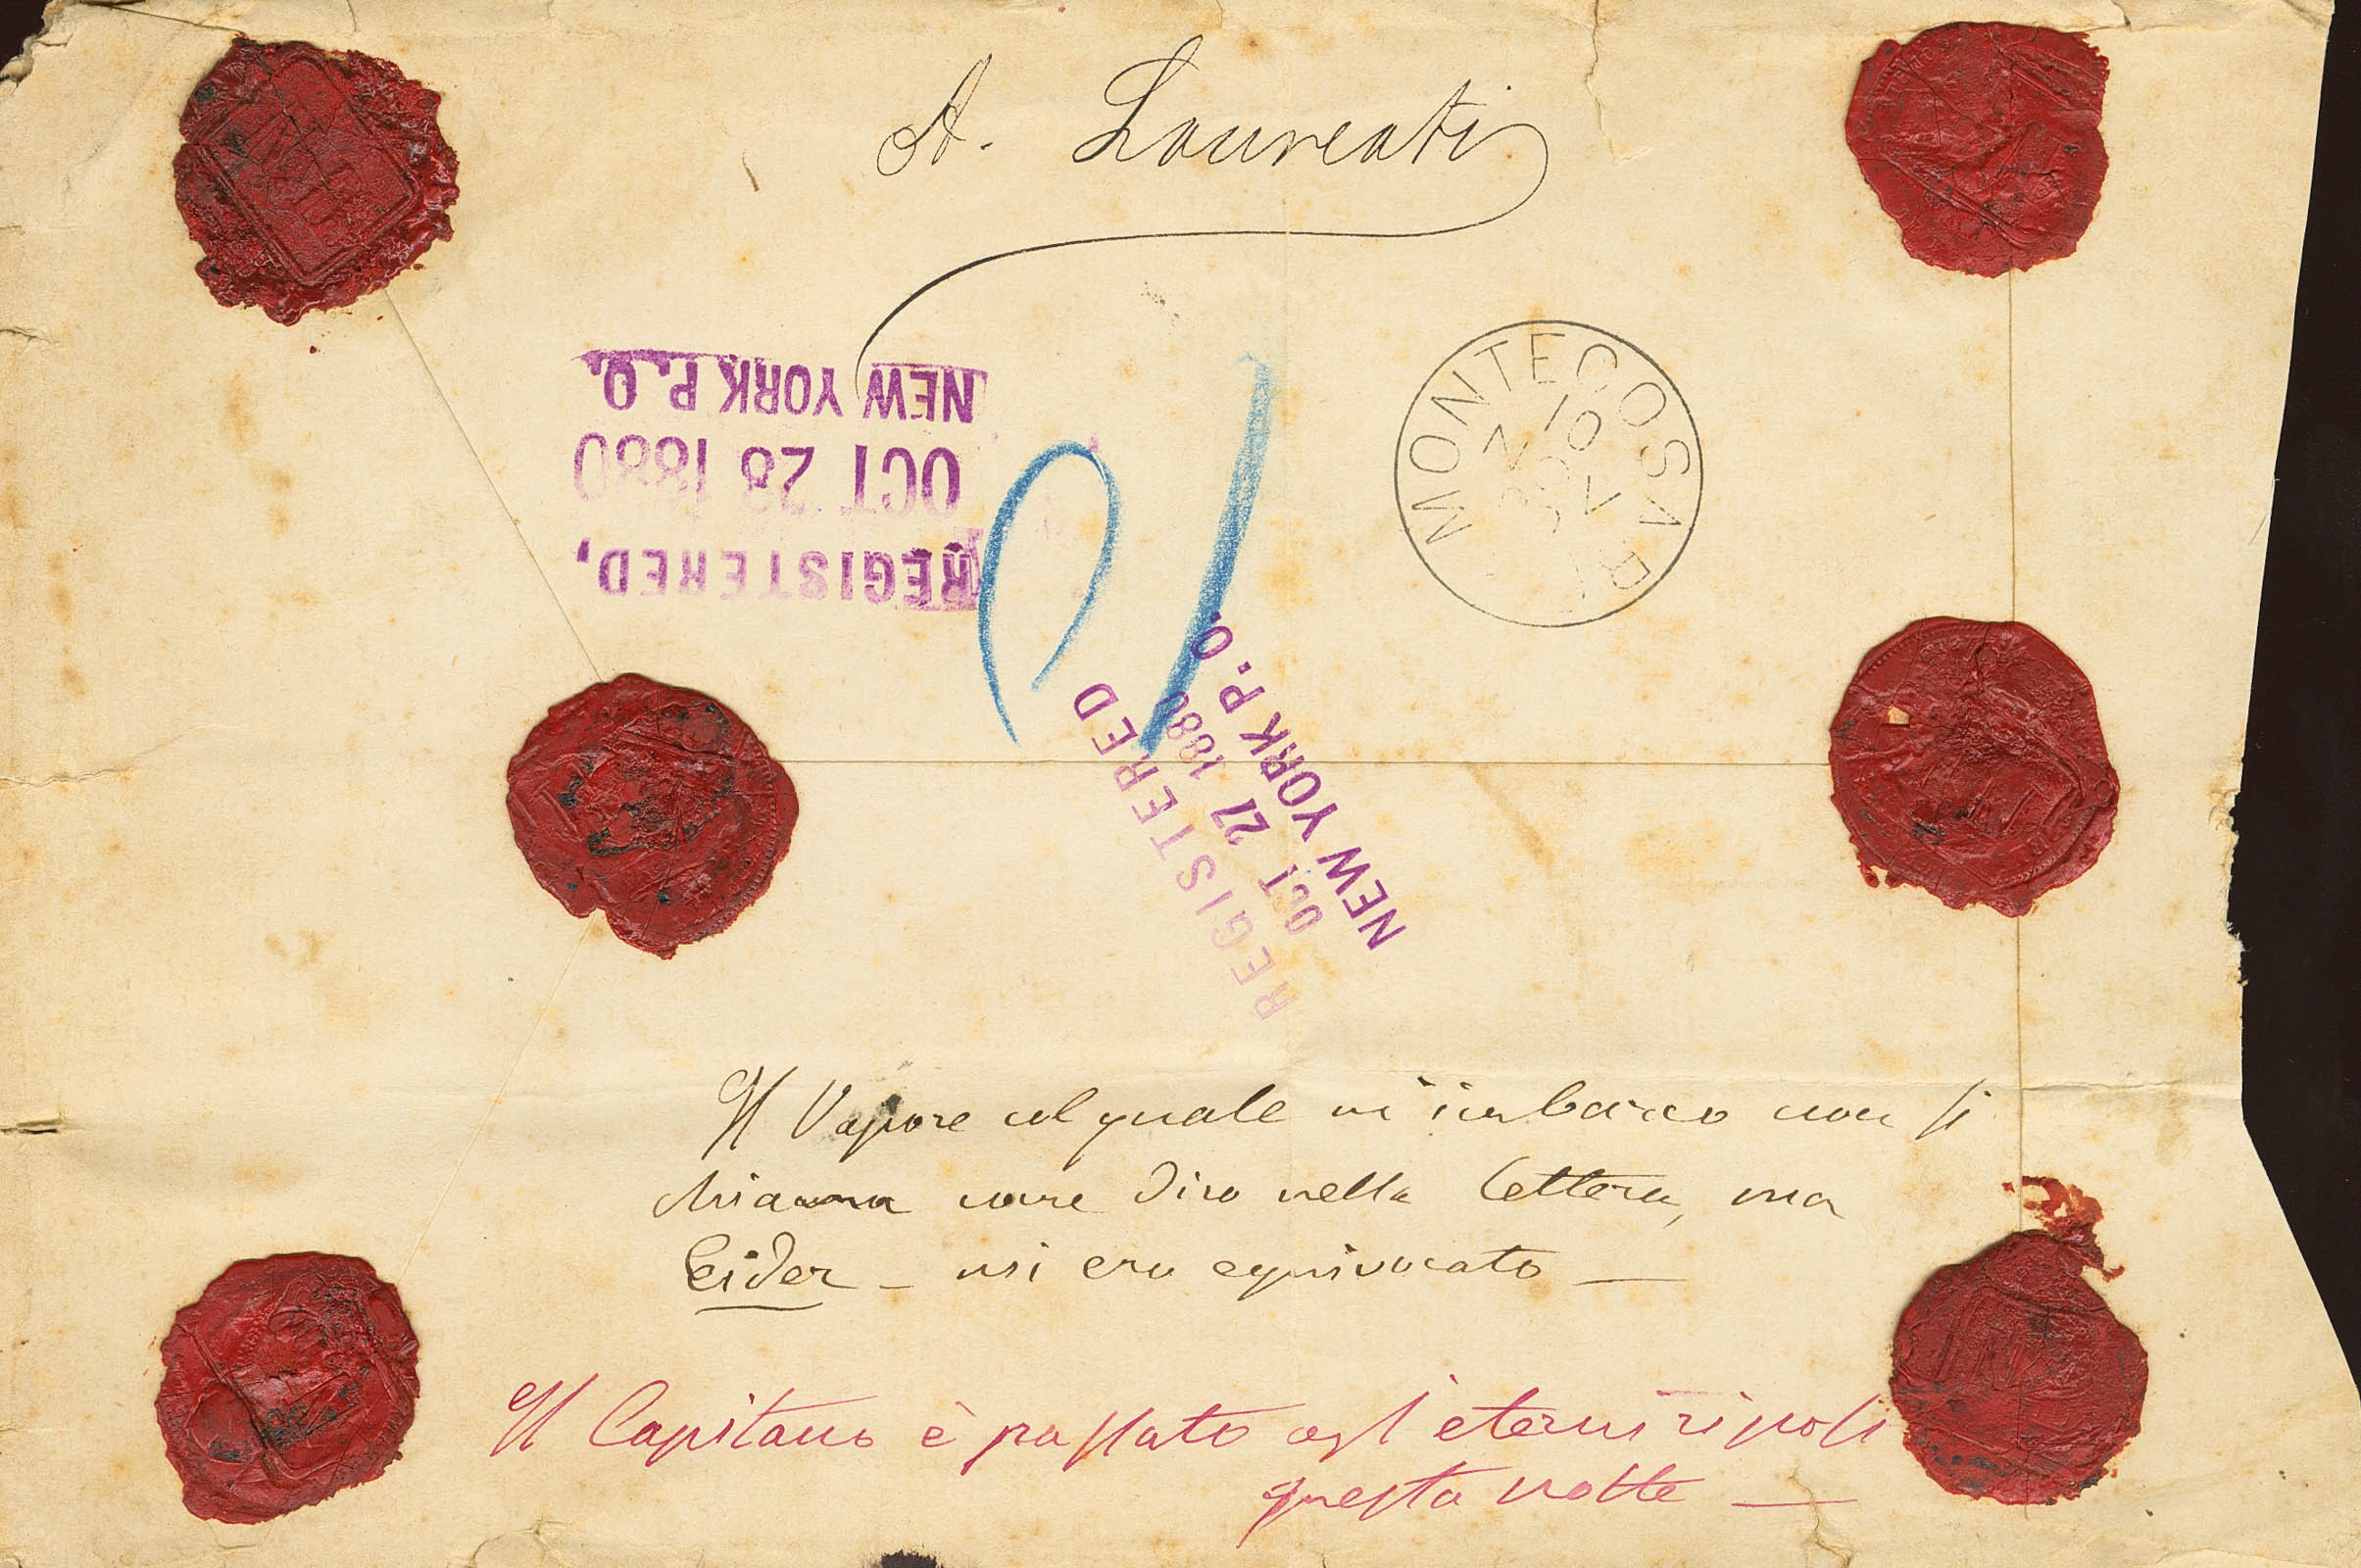 A. Laureati
NEW YORK P.O.
OCT 28 1880
REGISTERED,
MONTECOSARO
10
NOV
80
REGISTERED
OCT 27 1880
NEW YORK P.O.
Il Vapore col quale m'imbarco non si
chiama come dico nella lettera, ma
Eider - mi ero equivocato —
Il Capitano è passato agl'eterni riposi
questa notte —